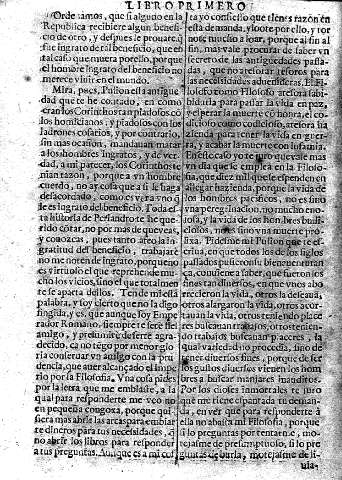 LIBRO PRIMERO
Ordenamos, que si alguno en la
Republica recibiere algun benefi-
cio de otro, y despues se prouare, q
fue ingrato de tal beneficio, que en
tal caso que muera por ello, porque
el hombre ingrato del beneficio no
merece viuir en el mundo.
Mira, pues, Pulion esta antigue
dad que te he contado, en como
eran los Corinthos tan piadosos cō
los homicianos, y piadosos con los
ladrones cosarios, y por contrario,
sin mas ocasion, mandauan matar
a los hombres ingratos, y de ver-
dad, a mi parecer, los Corinthos te-
nian razon, porque a vn hombre
cuerdo, no ay cosa que a si le haga
desacordado, como es ver a vno q̄
le es ingrato del beneficio. Toda es
ta historia de Periandro te he que-
rido cōtar, no por mas de que veas,
y conozcas, pues tanto afeo la in-
gratitud del beneficio, trabajarè
no me noten de ingrato, porque no
es virtuoso el que reprehende mu-
cho los vicios, sino el que totalmen
te se aparta dellos. Ten de mi esta
palabra, y soy cierto que no la digo
fingida, y es, que aunque soy Empe
rador Romano, siempre te sere fiel
amigo, y presumire de serte agra-
decido, ca no tego por menor glo
ria conseruar vn amigo con la pru
dencia, que auer alcançado el Impe
rio por la Filosofia. Vna cosa pides
por la letra que me embiaste, a la
qual para responderte me veo no
en pequeña congoxa, porque qui
siera mas abrir las arcas para embiar
te dineros para tus necesidades, q̄
no abrir los libros para responder
a tus preguntas. Aunque es a mi cos
ta yo confiesso que tienes razón en
esta demanda, y loote por ello, y tor
note mucho a loar, porque al fin al
fin, mas vale procurar de saber vn
secreto de las antiguedades passa-
das, que no atesorar tesoros para
las necesidades aduenideras. El Fi-
losofo como Filosofo atesora sabi-
biduria para passar la vida en paz,
y esperar la muerte cō honra, el co-
dicioso como codicioso, atesora ha
zienda para tener la vida en guer-
ra, y acabar la muerte con infamia.
En este caso yo te juro que vale mas
vn dia que se emplea en la Filoso-
fia, que diez mil que se espenden en
allegar hazienda, porque la vida de
los hombres pacificos, no es sino
vna peregrinacion, no mucho eno-
josa, y la vida de los hombres bulli-
ciosos, no es sino vna muerte pro-
lixa. Pidesme mi Pulion que te es-
criua, en que todos los de los siglos
passados pusieron su bienauenturan
ça, conuiene a saber, que fueron los
fines tan diuersos, en que vnos abo
rrecieron la vida, otros la desearā,
otros alargaron la vida, otros acor-
tauan la vida, otros teniendo place
res buscauan trabajos, otros tenien-
do trabajos, buscauan placeres, la
qual variedad no procedia, sino de
tener diuersos fines, porque de ser
los gustos diuersos vienen los hom
bres a buscar manjares inauditos.
Por los dioses inmortales te juro
que me tiene espantado tu deman-
da, en ver que para responderte a
ella no abasta mi Filosofia, porque
si lo preguntas por tentarme, mo-
tejasme de presumptuoso, si lo pre
guntas de burla, motejasme de li-
uia-